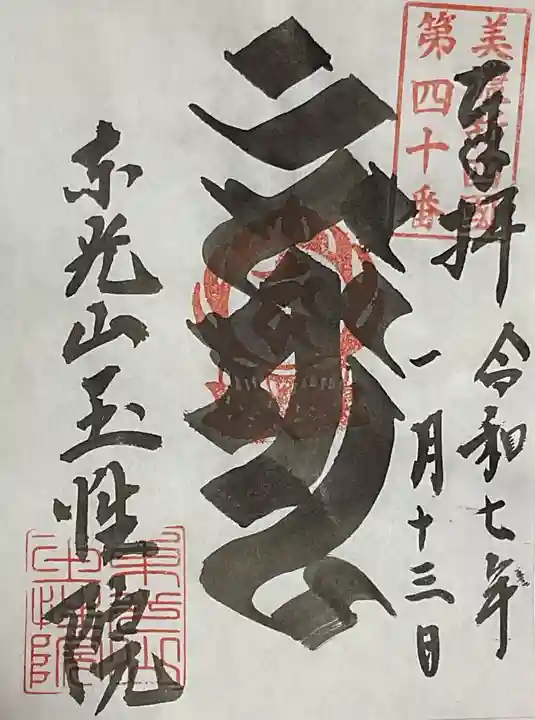 奉拝
令和七年
一月十三日
美濃新四國
第四十番
東光山玉性院